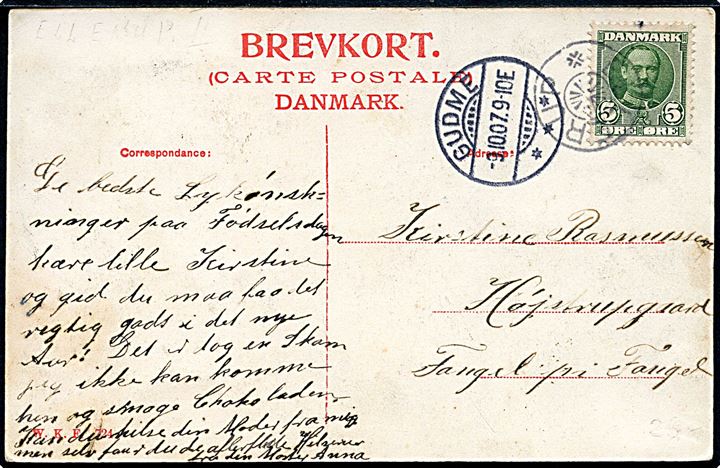 BREVKORT.
(CARTE POSTALE)
DANMARK.
DANMARK
5 5
ØRE ØRE
GUDME
3.10.07.9-10E
Correspondance:
Adresse:
De bedste Lykönsk-
ninger paa Födselsdagen
kære lille Kirstine
og gid du maa faa det
regtig godt i det nye
Aar! Det er log en Skam
jeg ikke kan komme
hen og smage Chokoladen
Kan du hilse din Moder fra mig
men selv faar du de aller fleste Hilsener
fra din Moster Anna
W. K. F. 724
Kirstine Rasmussen
Højstrupgaard
Fangel pi Fangel